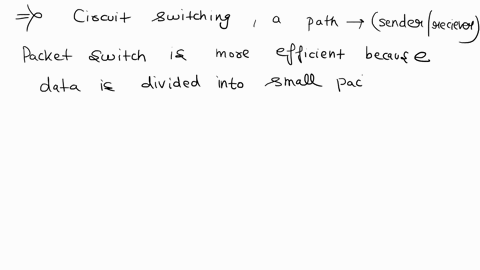 ⇒ Circuit switching, a path → (sender/reciever)
Packet switch is more efficient because
data is divided into small pac